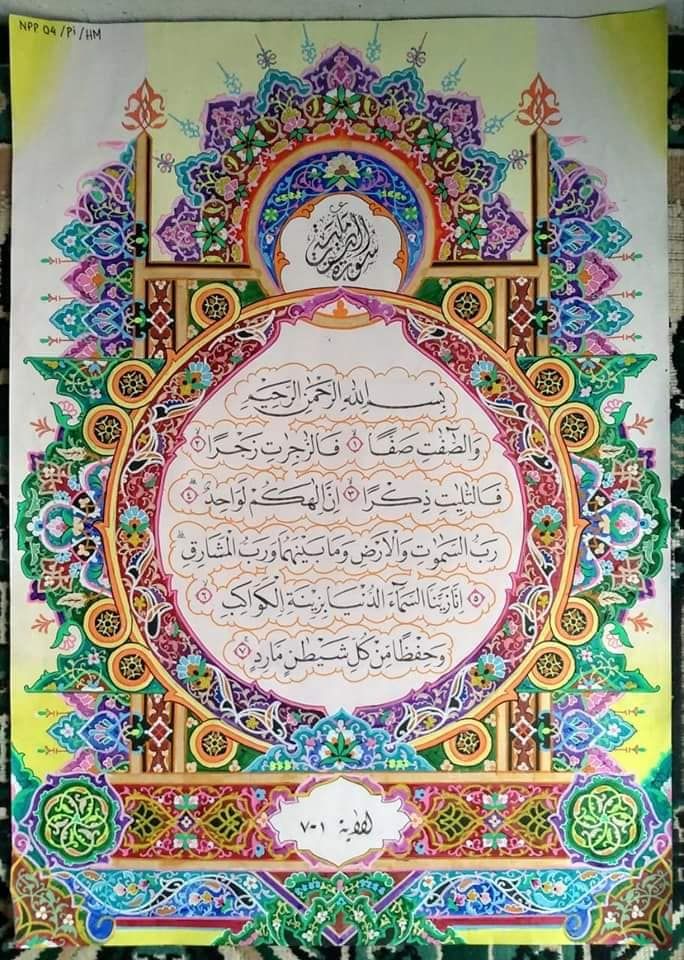 NPP 04/Pi/HM
سورة
بِسْمِ اللّٰهِ الرَّحْمٰنِ الرَّحِيْمِ
وَالصّٰۤفّٰتِ صَفًّا ١ فَالزّٰجِرٰتِ زَجْرًا ٢
فَالتّٰلِيٰتِ ذِكْرًا ٣ اِنَّ اِلٰهَكُمْ لَوَاحِدٌ ٤
رَبُّ السَّمٰوٰتِ وَالْاَرْضِ وَمَا بَيْنَهُمَا وَرَبُّ الْمَشَارِقِ
٥ اِنَّا زَيَّنَّا السَّمَاۤءَ الدُّنْيَا بِزِيْنَةِ ࣙالْكَوَاكِبِ ٦
وَحِفْظًا مِّنْ كُلِّ شَيْطٰنٍ مَّارِدٍ ٧
الآية ١-٧